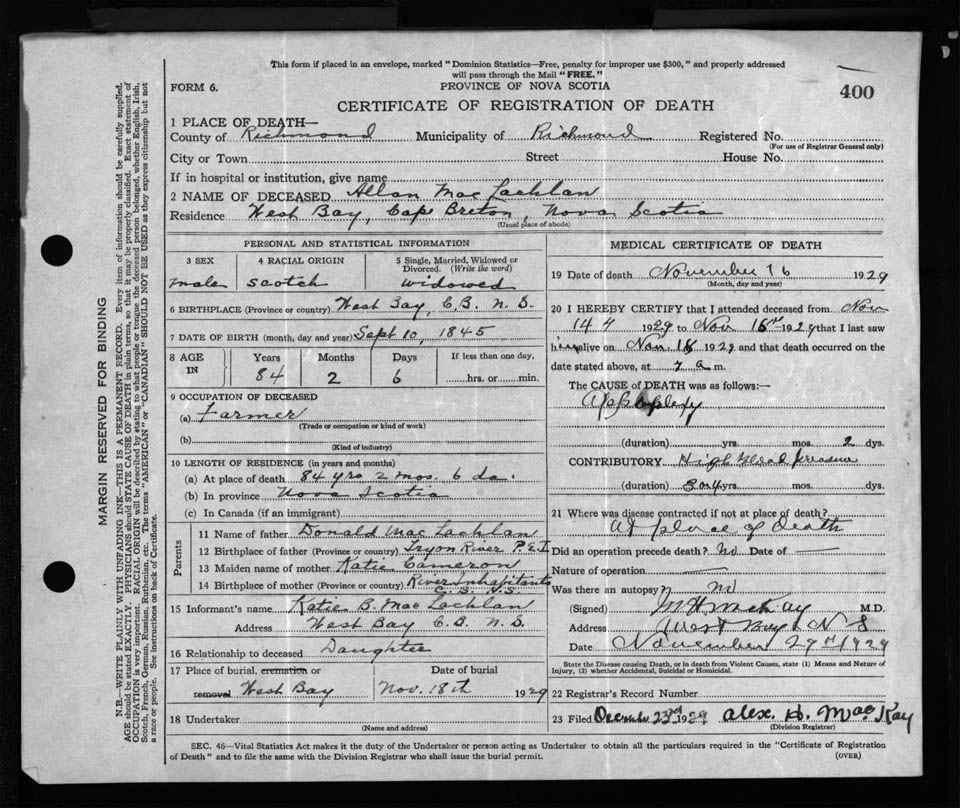 This form if placed in an envelope, marked "Dominion Statistics—Free, penalty for improper use $300," and properly addressed
will pass through the Mail "FREE."
FORM 6.
PROVINCE OF NOVA SCOTIA
400
CERTIFICATE OF REGISTRATION OF DEATH
1 PLACE OF DEATH—
County of Richmond Municipality of Richmond Registered No.
(For use of Registrar General only)
City or Town Street House No.
If in hospital or institution, give name
2 NAME OF DECEASED Allan Mac Lachlan
Residence West Bay, Cape Breton, Nova Scotia
(Usual place of abode)
PERSONAL AND STATISTICAL INFORMATION
3 SEX 4 RACIAL ORIGIN 5 Single, Married, Widowed or
Divorced. (Write the word)
male scotch widowed
6 BIRTHPLACE (Province or country) West Bay, C.B. N.S.
7 DATE OF BIRTH (month, day and year) Sept 10, 1845
8 AGE IN Years Months Days If less than one day,
84 2 6 hrs. or min.
9 OCCUPATION OF DECEASED
(a) Farmer
(Trade or occupation or kind of work)
(b)
(Kind of industry)
10 LENGTH OF RESIDENCE (in years and months)
(a) At place of death 84 yrs 2 mos. 6 da.
(b) In province Nova Scotia
(c) In Canada (if an immigrant)
Parents
11 Name of father Donald Mac Lachlan
12 Birthplace of father (Province or country) Tryon River P.E.I
13 Maiden name of mother Katie Cameron
14 Birthplace of mother (Province or country) River Inhabitants
C.B. N.S.
15 Informant's name Katie B. Mac Lachlan
Address West Bay C.B. N.S.
16 Relationship to deceased Daughter
17 Place of burial, cremation or Date of burial
removal West Bay Nov. 18th 1929
18 Undertaker
(Name and address)
MEDICAL CERTIFICATE OF DEATH
19 Date of death November 16 1929
(Month, day and year)
20 I HEREBY CERTIFY that I attended deceased from Nov
14 1929 to Nov 1929 that I last saw
him alive on Nov. 1929 and that death occurred on the
date stated above, at 7 a m.
The CAUSE of DEATH was as follows:—
Apoplexy
(duration) yrs. mos. 2 dys.
CONTRIBUTORY High blood pressure
(duration) 3 or 4 yrs. mos. dys.
21 Where was disease contracted if not at place of death?
At place of death
Did an operation precede death? No Date of —
Nature of operation —
Was there an autopsy? No
(Signed) McKay M.D.
Address West Bay N S
Date November 29th 1929
State the Disease causing Death, or in death from Violent Causes, state (1) Means and Nature of
Injury, (2) whether Accidental, Suicidal or Homicidal.
22 Registrar's Record Number
23 Filed December 23rd 1929 Alex. B. MacKay
(Division Registrar)
SEC. 46—Vital Statistics Act makes it the duty of the Undertaker or person acting as Undertaker to obtain all the particulars required in the "Certificate of Registration
of Death" and to file the same with the Division Registrar who shall issue the burial permit. (OVER)
MARGIN RESERVED FOR BINDING
N.B.—WRITE PLAINLY WITH UNFADING INK—THIS IS A PERMANENT RECORD. Every item of information should be carefully supplied.
AGE should be stated EXACTLY. PHYSICIANS should STATE CAUSE OF DEATH in plain terms, so that it may be properly classified. Exact statement of
OCCUPATION is very important. RACIAL ORIGIN will be described by stating to what people or tongue the deceased person belonged, whether English, Irish,
Scotch, French, German, Russian, Ruthenian, etc. The terms "AMERICAN" or "CANADIAN" SHOULD NOT BE USED as they express citizenship but not
a race or people. See instructions on back of Certificate.